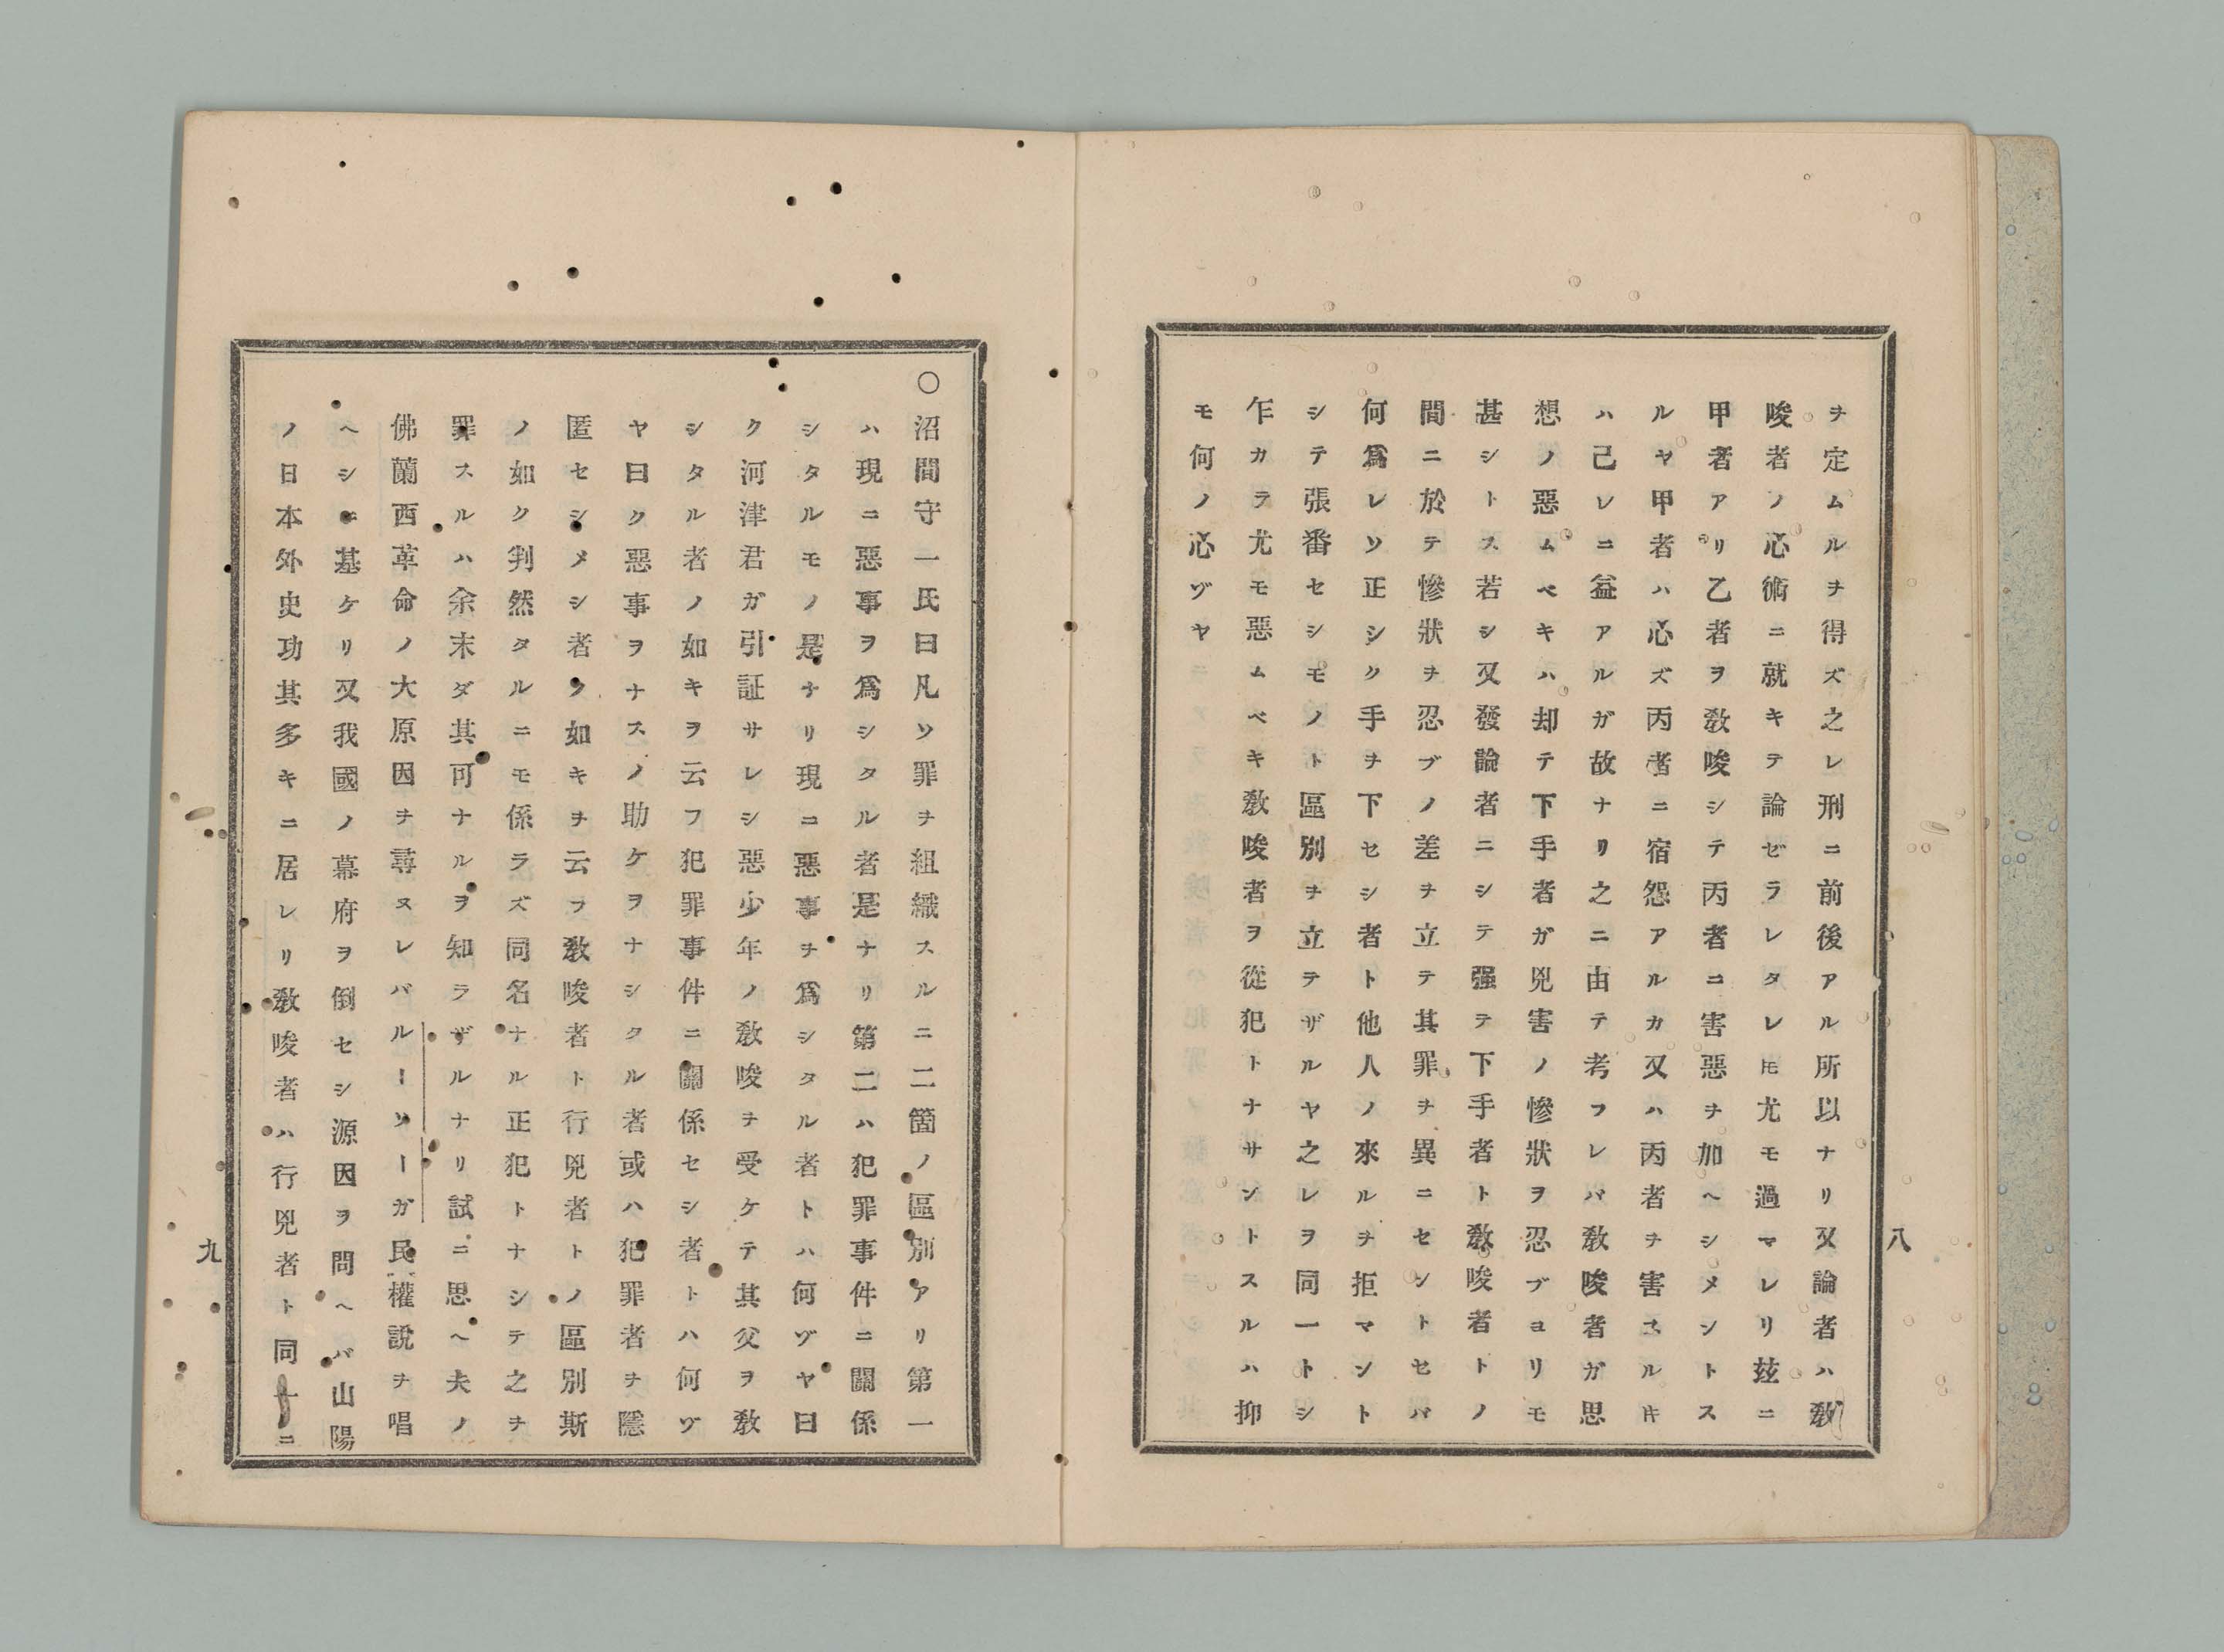 ヲ定ムルヲ得ズ之レ刑ニ前後アル所以ナリ又論者ハ敎
唆者ノ心術ニ就キテ論ゼラレタレ𪜈尤モ過マレリ玆ニ
甲者アリ乙者ヲ敎唆シテ丙者ニ害惡ヲ加ヘシメントス
ルヤ甲者ハ必ズ丙者ニ宿怨アルカ又ハ丙者ヲ害スルキ
ハ己レニ益アルガ故ナリ之ニ由テ考フレバ敎唆者ガ思
想ノ惡ムベキハ却テ下手者ガ兇害ノ慘狀ヲ忍ブヨリモ
甚シトス若シ又發論者ニシテ强テ下手者ト敎唆者トノ
間ニ於テ慘狀ヲ忍ブノ差ヲ立テ其罪ヲ異ニセントセバ
何爲レソ正シク手ヲ下セシ者ト他人ノ來ルヲ拒マント
シテ張番セシモノト區別ヲ立テザルヤ之レヲ同一トシ
乍カラ尤モ惡ムベキ敎唆者ヲ從犯トナサントスルハ抑
モ何ノ心ヅヤ
八
○沼間守一氏曰凡ソ罪ヲ組織スルニ二箇ノ區別アリ第一
ハ現ニ惡事ヲ爲シタル者是ナリ第二ハ犯罪事件ニ關係
シタルモノ是ナリ現ニ惡事ヲ爲シタル者トハ何ヅヤ曰
ク河津君ガ引証サレシ惡少年ノ敎唆ヲ受ケテ其父ヲ敎
シタル者ノ如キヲ云フ犯罪事件ニ關係セシ者トハ何ヅ
ヤ曰ク惡事ヲナスノ助ケヲナシタル者或ハ犯罪者ヲ隱
匿セシメシ者ノ如キヲ云フ敎唆者ト行兇者トノ區別斯
ノ如ク判然タルニモ係ラズ同名ナル正犯トナシテ之ヲ
罪スルハ余末ダ其可ナルヲ知ラザルナリ試ニ思ヘ夫ノ
佛蘭西革命ノ大原因ヲ尋ヌレバルーソーガ民權說ヲ唱
ヘシニ基ケリ又我國ノ幕府ヲ倒セシ源因ヲ問ヘバ山陽
ノ日本外史功其多キニ居レリ敎唆者ハ行兇者ト同一ニ
九